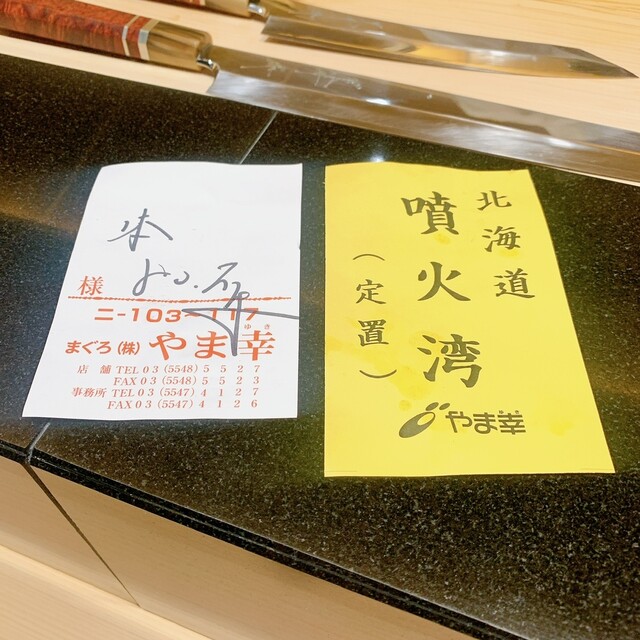 様
ニ-103-117
まぐろ(株)やま幸
ゆき
店 舗 TEL 03 (5548) 5 5 2 7
FAX 03 (5548) 5 5 2 3
事務所 TEL 03 (5547) 4 1 2 7
FAX 03 (5547) 4 1 2 6
北海道
噴火湾
(定置)
やま幸